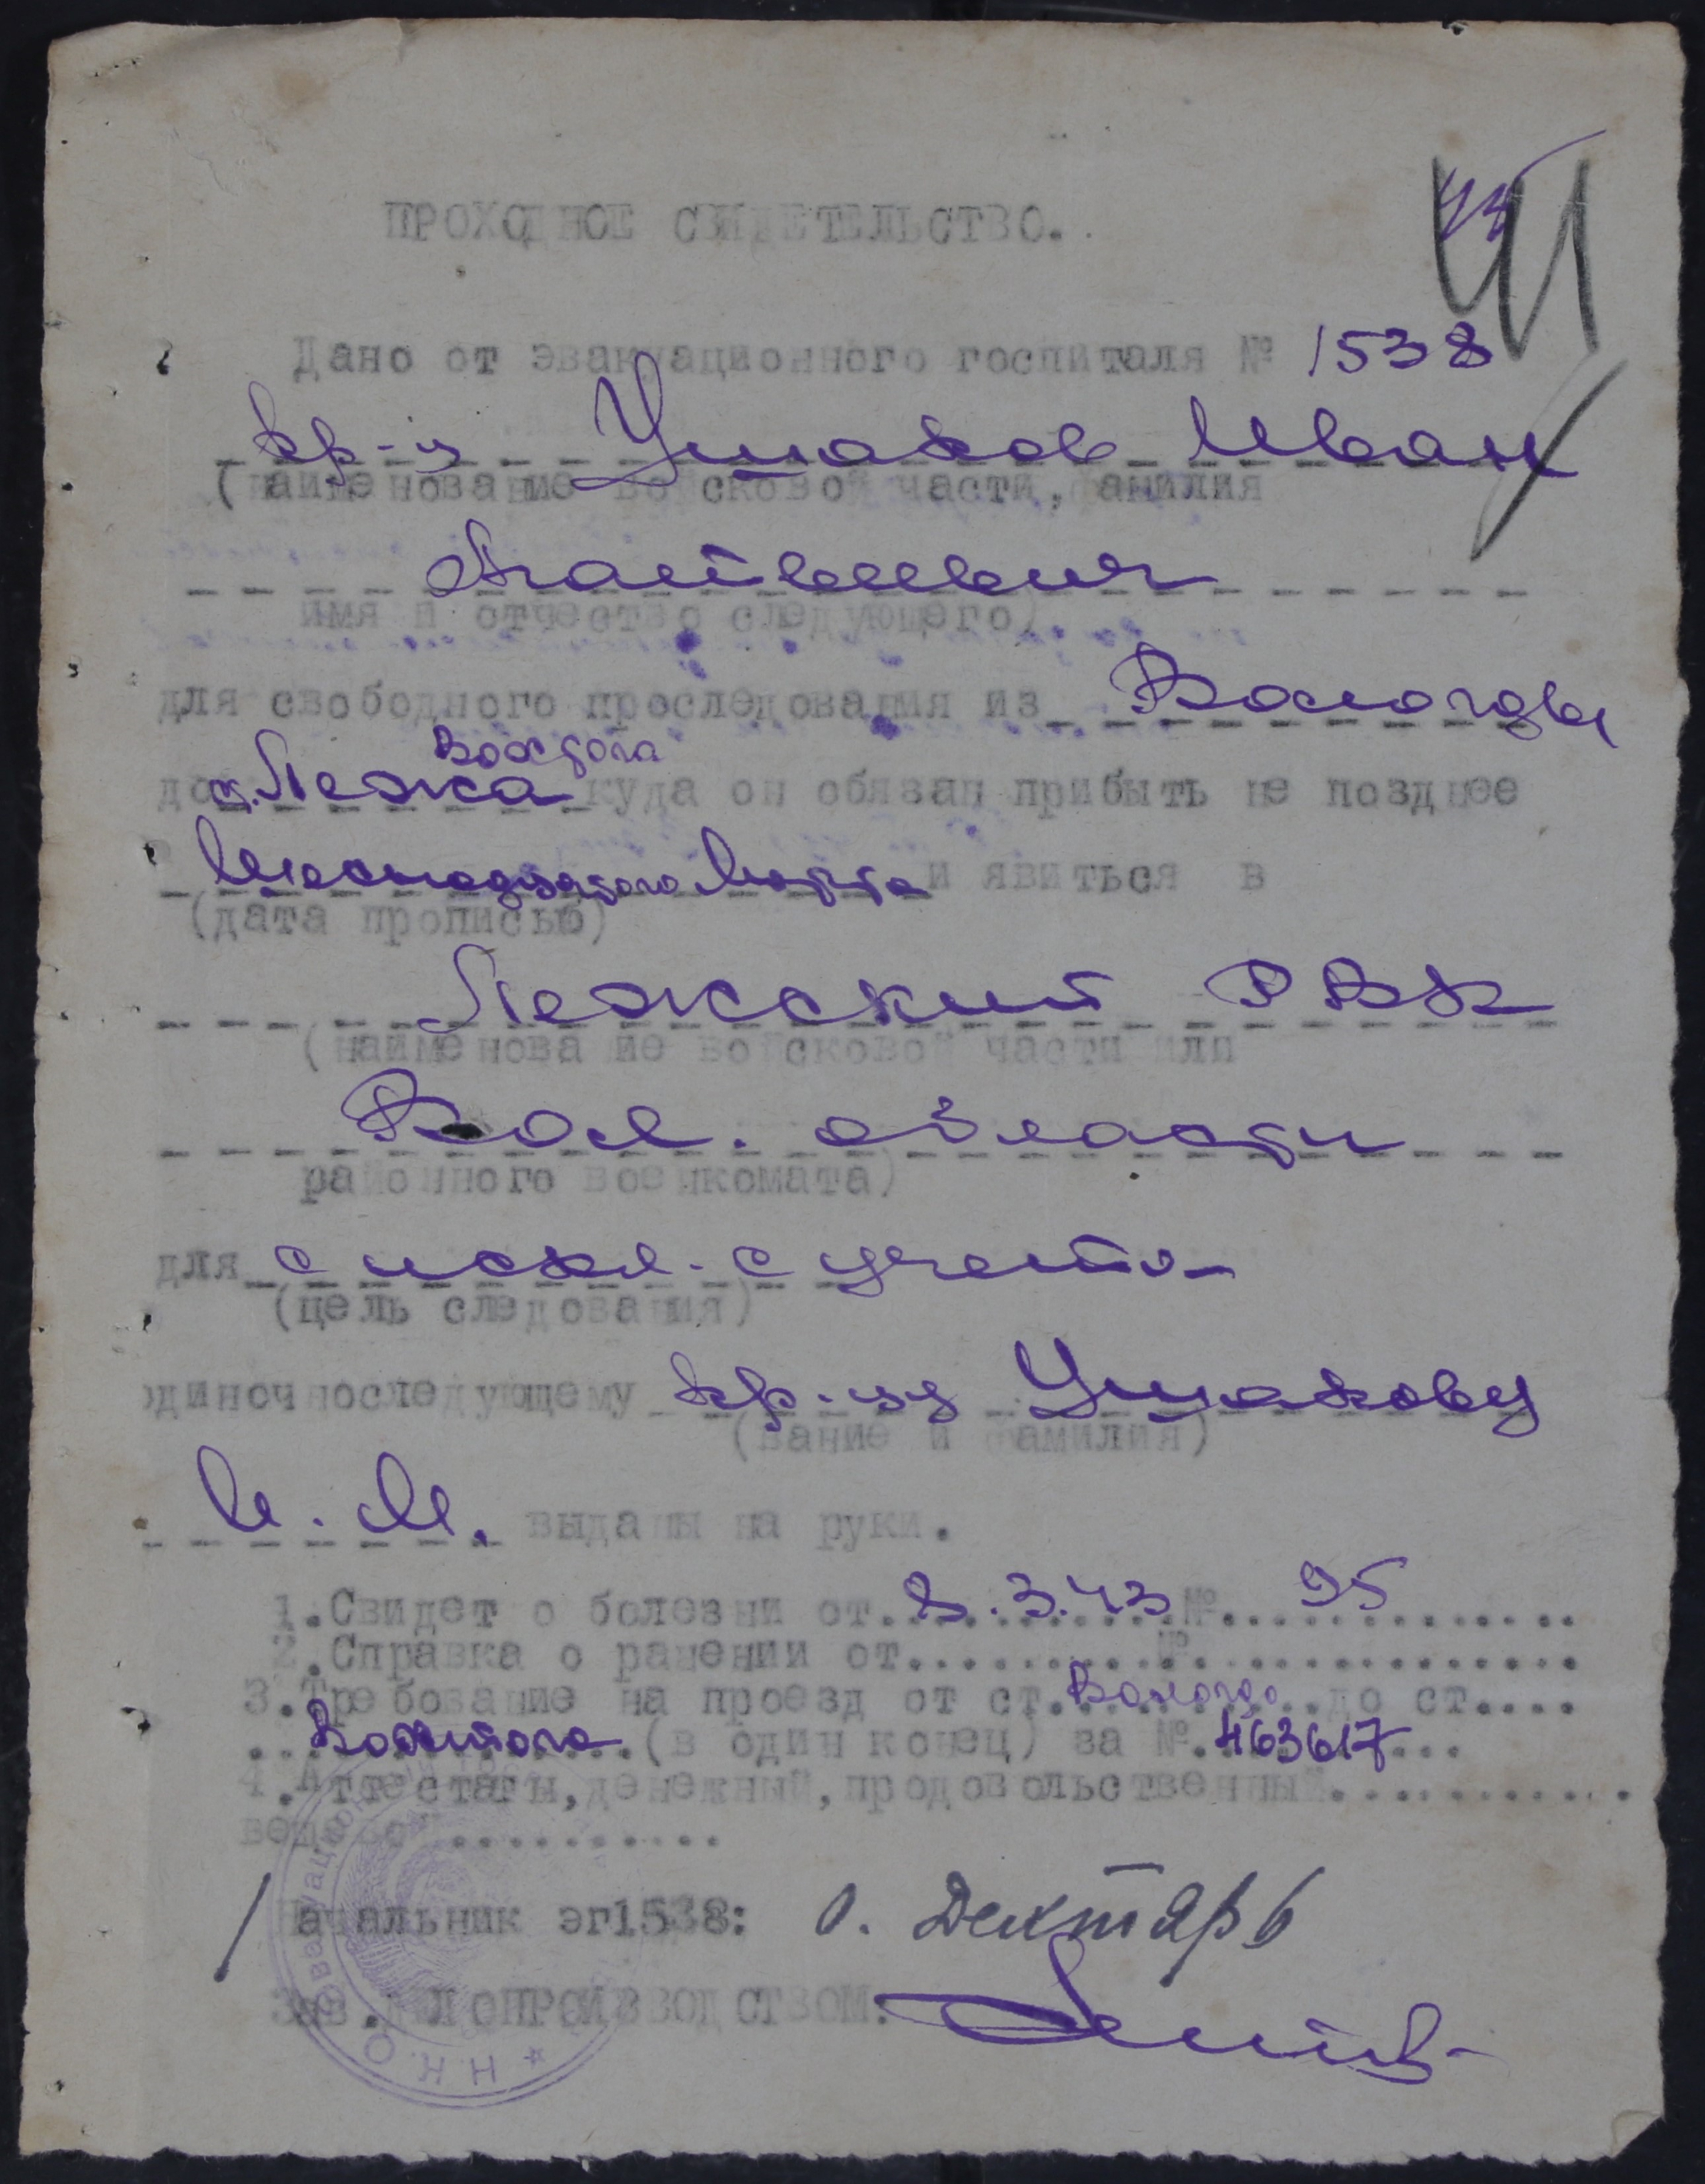 ПРОХОДНОЕ СВИДЕТЕЛЬСТВО.
Дано от эвакуационного госпиталя № 1538
кр-ц Ушаков Иван
(наименование войсковой части, фамилия
Матвеевич
имя и отчество следующего)
для свободного проследования из Вологды
Вохтога
до с. Лежа куда он обязан прибыть не позднее
марта и явиться в
(дата прописью)
Лежский РВК
(наименование войсковой части или
Вол. области
районного военкомата)
для с искл. с учета
(цель следования)
одиночноследующему кр-цу Ушакову
(звание и фамилия)
И. М. выданы на руки.
1. Свидет о болезни от 8.3.43 № 95
2. Справка о ранении от №
3. Требование на проезд от ст. Вологда до ст.
Вохтога (в один конец) за № 463617
4. Аттестаты, денежный, продовольственный
Начальник эг1538: О. Дектярь
Зав. делопроизводством:
Н.К.О.